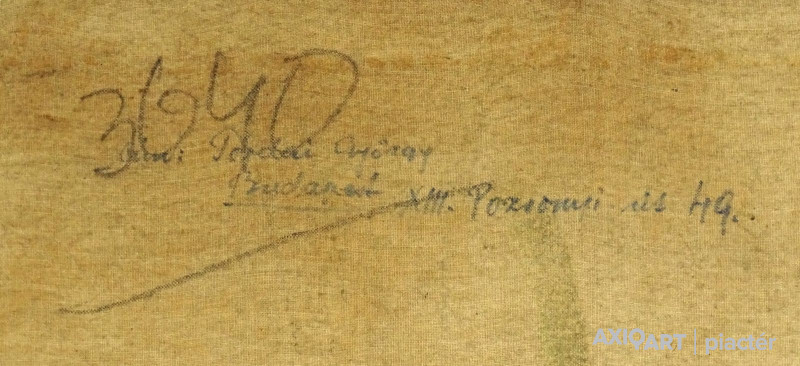 3640
cím: Pogdai György
Budapest XIII. Pozsonyi út 49.
AXIOART | piactér